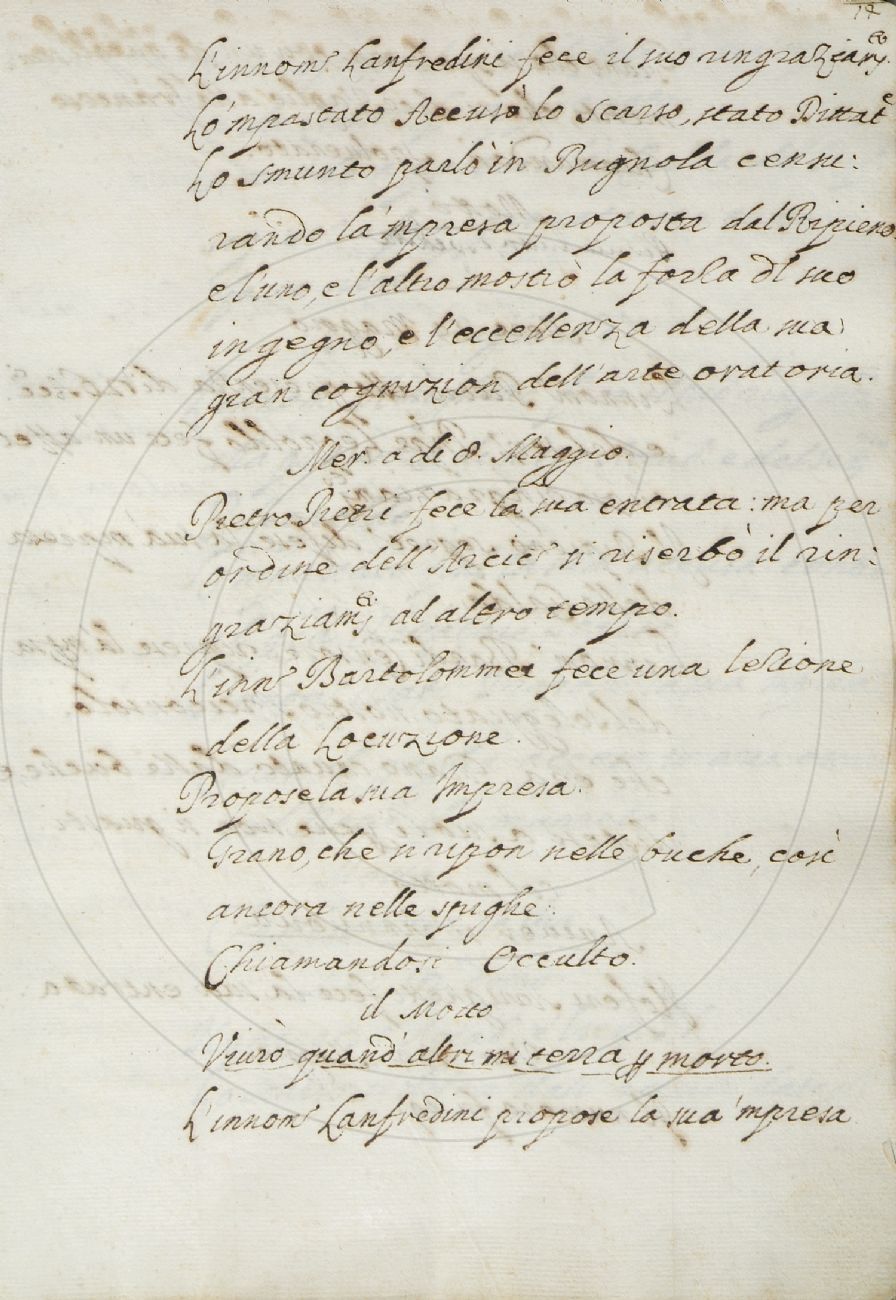 14
L'innom.to Lanfredini fece il suo ringraziam.to
Lo 'mpastato Accusò lo Scarso, stato Dittat.e
Lo Smunto parlò in Bugnola censu:
rando la 'mpresa proposta dal Ripieno
e l'uno, e l'altro mostrò la forza dl suo
ingegno, e l'eccellenza della sua
gran cognizion dell'arte oratoria.
Mer. a di 8. Maggio.
Pietro Pieri fece la sua entrata: ma per
ordine dell'Arcic.o si riserbò il rin:
graziam.to ad altro tempo.
L'inn.o Bartolommei fece una lezione
della Locuzione.
Propose la sua Impresa.
Grano, che si ripon nelle buche, così
ancora nelle spighe.
Chiamandosi Occulto.
il Motto
Viurò quand' altri mi terrà p morto.
L'innom.to Lanfredini propose la sua 'mpresa